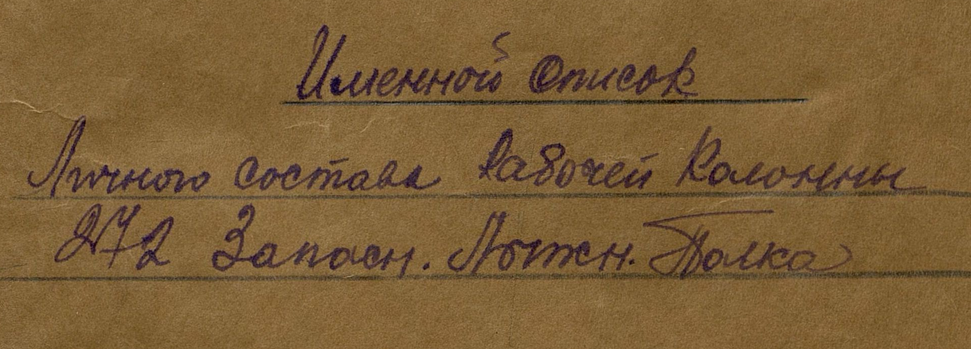 Именной список
Личного состава Рабочей Колонны
272 Запасн. Лыжн. Полка